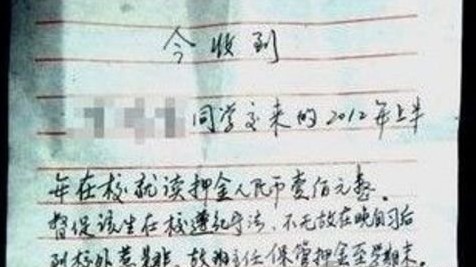 今收到
同学交来的2012年上半
年在校就读押金人民币壹佰元整。
督促该生在校遵纪守法、不无故在晚自习后
到校外惹是非、故班主任保管押金至学期末。